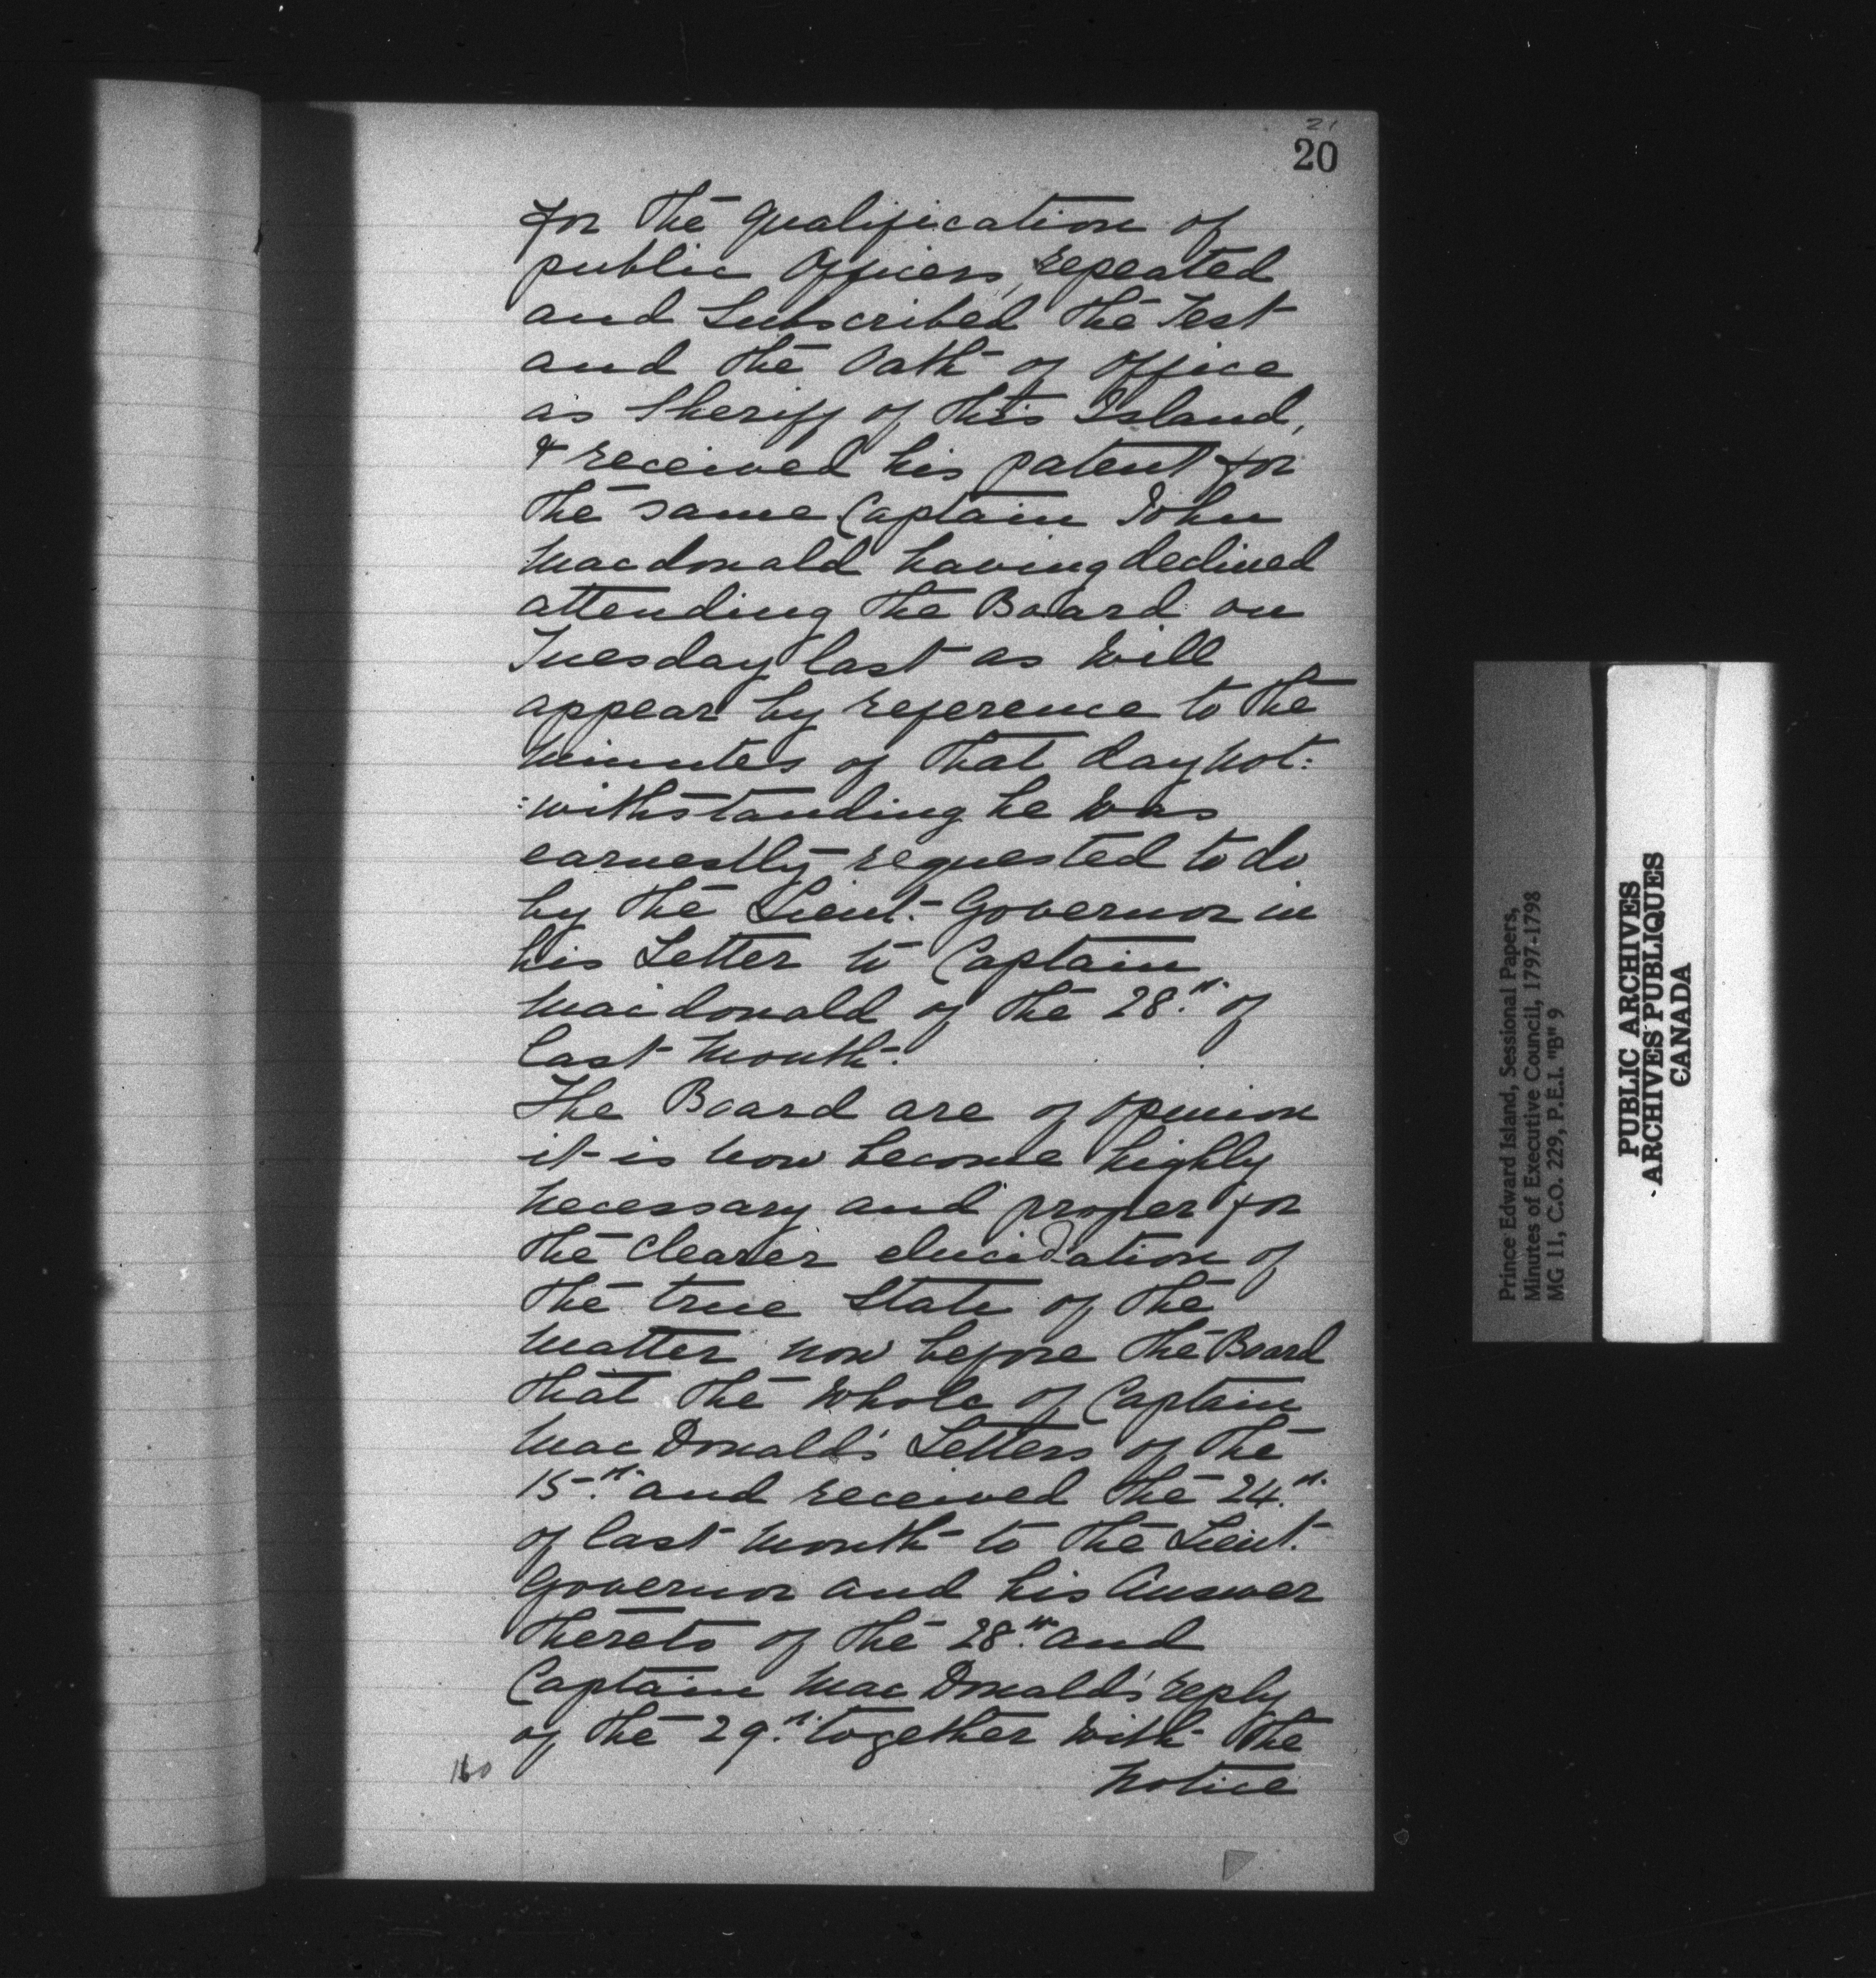 21
20
for the qualification of
public Officers, repeated
and Subscribed the Test
and the Oath of Office
as Sheriff of this Island,
& received his patent for
the same Captain John
Macdonald having declined
attending the Board on
Tuesday last as will
appear by reference to the
minutes of that day not:
:withstanding he was
earnestly requested to do
by the Lieut. Governor in
his Letter to Captain
Macdonald of the 28.th of
last month.
The Board are of opinion
it is now become highly
necessary and proper for
the clearer elucidation of
the true State of the
matter now before the Board
that the whole of Captain
MacDonald's Letters of the
15.th and received the 24.th
of last month to the Lieut.
Governor and his Answer
thereto of the 28.th and
Captain MacDonald's reply
of the 29.th together with the
notice
160
Prince Edward Island, Sessional Papers,
Minutes of Executive Council, 1797-1798
MG 11, C.O. 229, P.E.I. "B" 9
PUBLIC ARCHIVES
ARCHIVES PUBLIQUES
CANADA